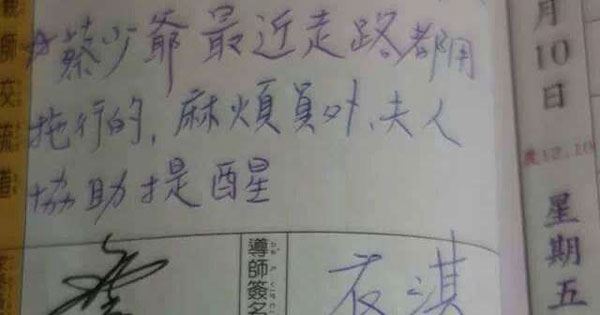 蔡少爺最近走路都用
拖行的，麻煩員外、夫人
協助提醒
導師簽名
夜淇
月10日
農12.10
星期五